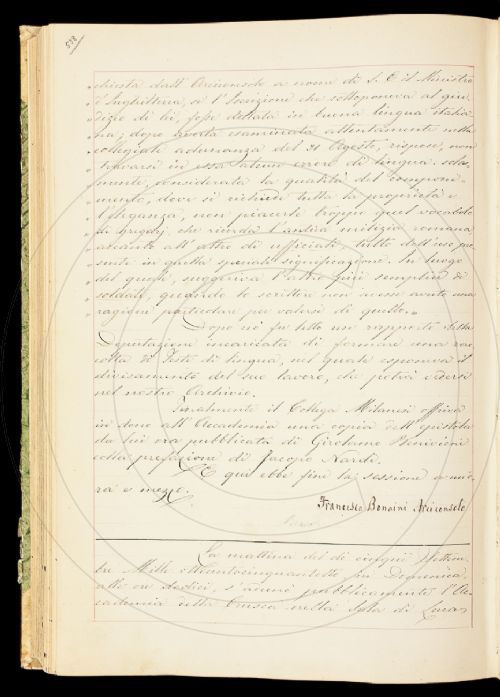 538
„ chiesta dall'Arciconsolo a nome di S. E. il Ministro
„ d'Inghilterra, se l'Iscrizione che sottoponeva al giu-
„ dizio di lei, fosse dettata in buona lingua italia-
„ na; dopo averla esaminata attentamente nella
„ collegiale adunanza del 31 Agosto, rispose, non
„ trovarsi in essa alcun errore di lingua: sola-
„ mente, considerata la qualità del componi-
„ mento, dove si richiede tutta la proprietà e
„ l'eleganza, non piacerle troppo quel vocabolo
„ di gregarj, che ricorda l'antica milizia romana,
„ accanto all'altro di ufficiali, tutto dell'uso pre-
„ sente in quella speciale significazione. In luogo
„ del quale, suggeriva l'altro più semplice di
„ soldati, quando lo scrittore non avesse avuto una
„ ragione particolare per valersi di quello. „
Dopo ciò fu letto un rapporto della
Deputazione incaricata di formare una rac-
colta di Testi di lingua, nel quale esponeva il
divisamento del suo lavoro, che potrà vedersi
nel nostro Archivio.
Finalmente il Collega Milanesi offriva
in dono all'Accademia una copia dell'epistola
da lui ora pubblicata di Girolamo Benivieni
colla prefazione di Jacopo Nardi.
E qui ebbe fine la sessione a un'o-
ra e mezzo.
Francesco Bonaini Arciconsolo
La mattina del dì cinque Settem-
bre Mille ottocentocinquantotto in Domenica,
alle ore dodici, s'adunò pubblicamente l'Ac-
cademia della Crusca nella Sala di Luca